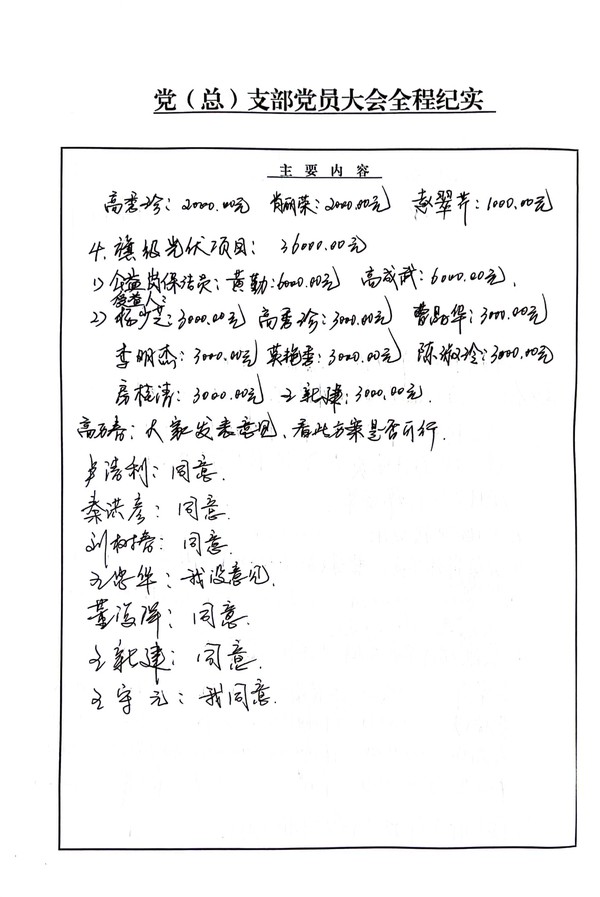 党（总）支部党员大会全程纪实
主 要 内 容
高秀珍：2000.00元 肖丽荣：2000.00元 赵翠芹：1000.00元
4. 旗级光伏项目：36000.00元
1) 公益岗保洁员：黄勤：6000.00元 高成武：6000.00元，
受益人：
2) 杨少芝：3000.00元 高秀珍：3000.00元 曹 华：3000.00元
李明杰：3000.00元 英艳春：3000.00元 陈淑玲：3000.00元
房桂清：3000.00元 王新建：3000.00元.
高万春：大家发表意见，看此方案是否可行.
卢浩利：同意.
秦洪彦：同意.
刘树春：同意.
王忠华：我没意见.
董海军：同意.
王新建：同意.
王守元：我同意.